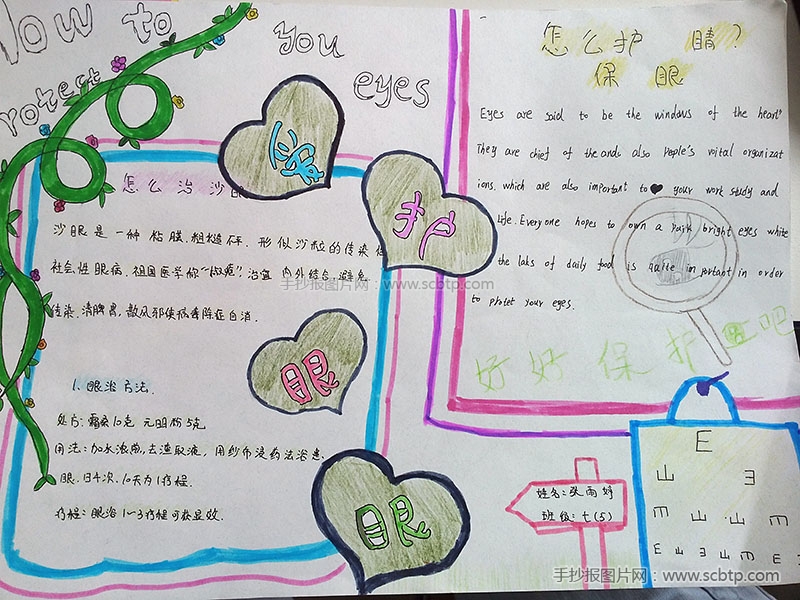 How to
protect
you
eyes
怎么护 睛?
保 眼
Eyes are said to be the windows of the heart"
They are chief of the ands also people's voital organizat
ions. which are also important to ♥ your work study and
life. Everyone hopes to own a pair bright eyes while
the laks of daily food is quite inportant in order
to protet your eyes.
好好保护 吧
爱
护
眼
眼
怎么治沙眼
沙眼是一种粘膜粗糙 形似沙粒的传染
社会性眼病. 祖国医学称 治宜 内外结合,避免
传染.清脾胃,散风邪使病毒
1、眼浴方法.
处方:霜桑10克 元明粉5克
用法:加水浓煎,去渣取液,用纱布浸药法浴患
眼.日4次.10天为1疗程.
疗程:眼浴1~3疗程可获显效.
姓名:张雨婷
班级:七(5)
E
山 ヨ
E 山 山 m
E 山 ヨ m E ヨ
手抄报图片网:www.scbtp.com
手抄报图片网:www.scbtp.com